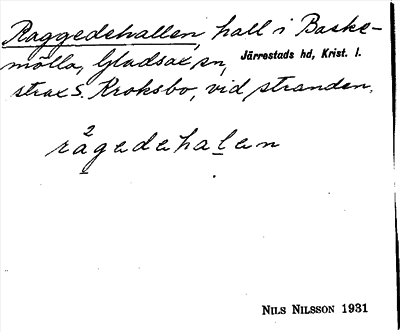 Raggedehallen, hall i Baske-
mölla, Gladsax sn, Järrestads hd, Krist. l.
strax S. Kroksbo, vid stranden.
2
ragedehalen
NILS NILSSON 1931